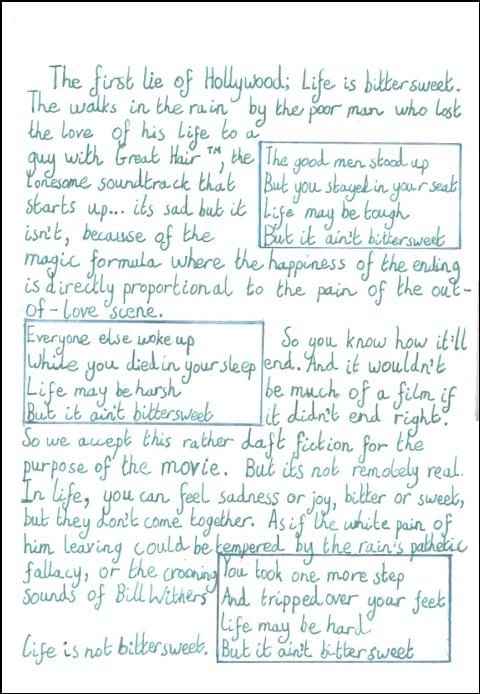 The first lie of Hollywood; Life is bittersweet.
The walks in the rain by the poor man who lost
the love of his life to a
guy with Great Hair™, the
lonesome soundtrack that
starts up... its sad but it
isn't, because of the
magic formula where the happiness of the ending
is directly proportional to the pain of the out-
of-love scene.
The good men stood up
But you stayed in your seat
Life may be tough
But it ain't bittersweet
Everyone else woke up
While you died in your sleep
Life may be harsh
But it ain't bittersweet
So you know how it'll
end. And it wouldn't
be much of a film if
it didn't end right.
So we accept this rather daft fiction for the
purpose of the movie. But its not remotely real.
In life, you can feel sadness or joy, bitter or sweet,
but they don't come together. As if the white pain of
him leaving could be tempered by the rain's pathetic
fallacy, or the crooning
sounds of Bill Withers
You took one more step
And tripped over your feet
Life may be hard
But it ain't bittersweet
Life is not bittersweet.